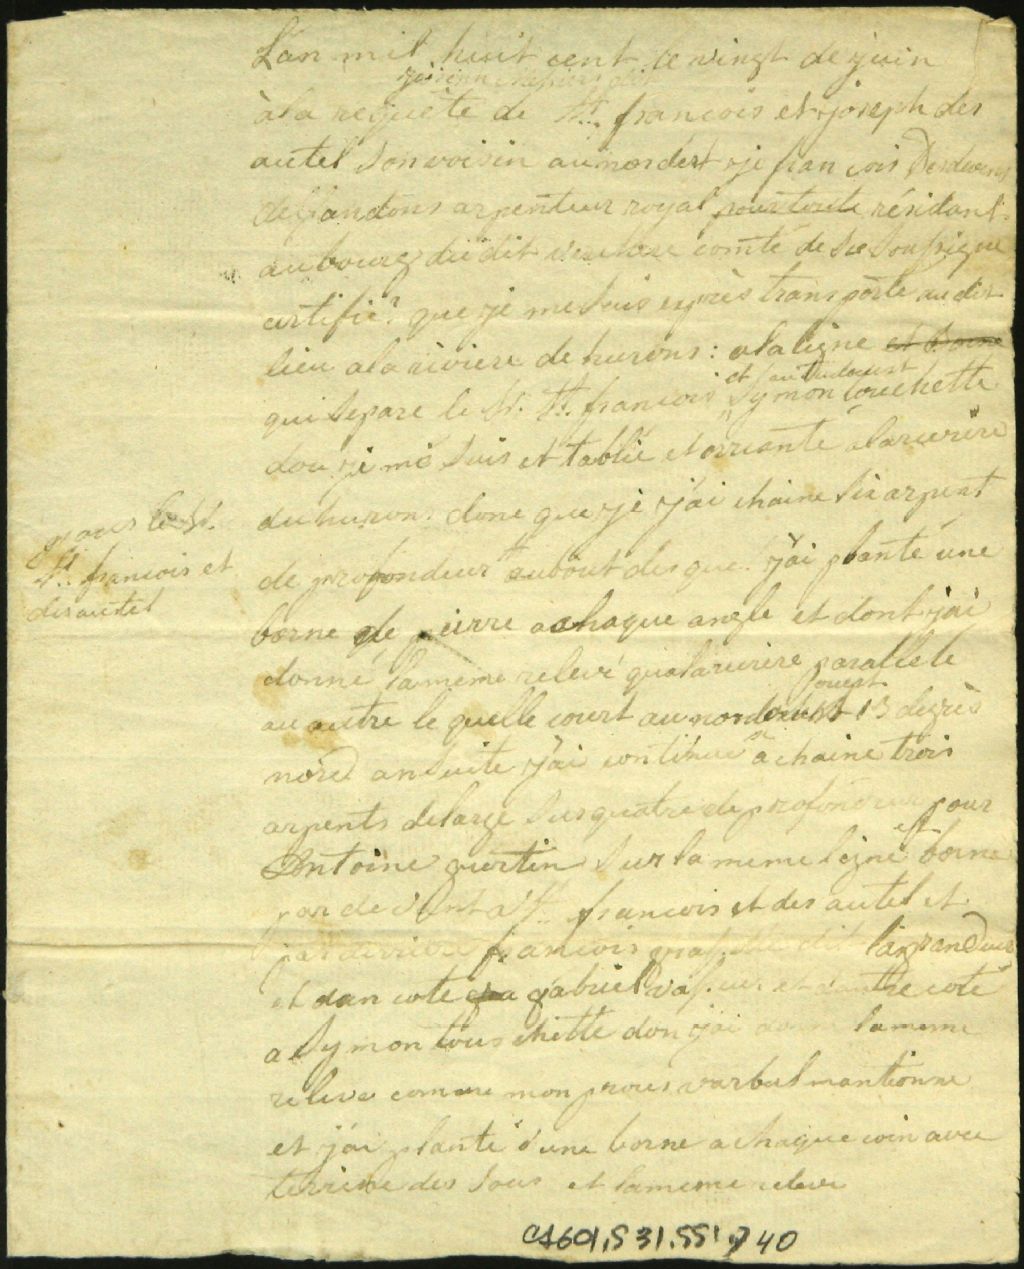 L'an mil huit cent le vingt de juin
à la requête de St. françois et joseph des
autel son voisin au nordest je françois Desdevens
deglandons arpenteur royal pour toute résidant
au bourg du dit comté de soussigné
certifie que je me suis exprès transporté au dit
lieu a la riviere de hurons : a la ligne et borne
et sur
qui separe le Sr. St. françois Symon touchette
dou je me suis et tablie et orriante a la riviere
du huron. donc que je j'ai chaine six arpent
pour le Sr.
St. françois et
desautel
de profondeur au bout des que j'ai planté une
borne de peirre a chaque angle et dont j'ai
donné la meme relevé qu a la riviere parallele
ouest
au autre le quelle court au nord 13 degrès
nord ansuite j'ai continué a chaine trois
arpents de large sur quatre de profondeur pour
et
Antoine vertin sur la meme ligne borne
par devent a St. françois et des autel et
par derriere francois dit
et dan cote gabriel et dautre coté
a Symon touchette don j'ai donné la meme
releve comme mon proces varbal mantionne
et j'ai planté d'une borne a chaque coin avec
des sous et la meme releve
CA601,S31,SS1,D40